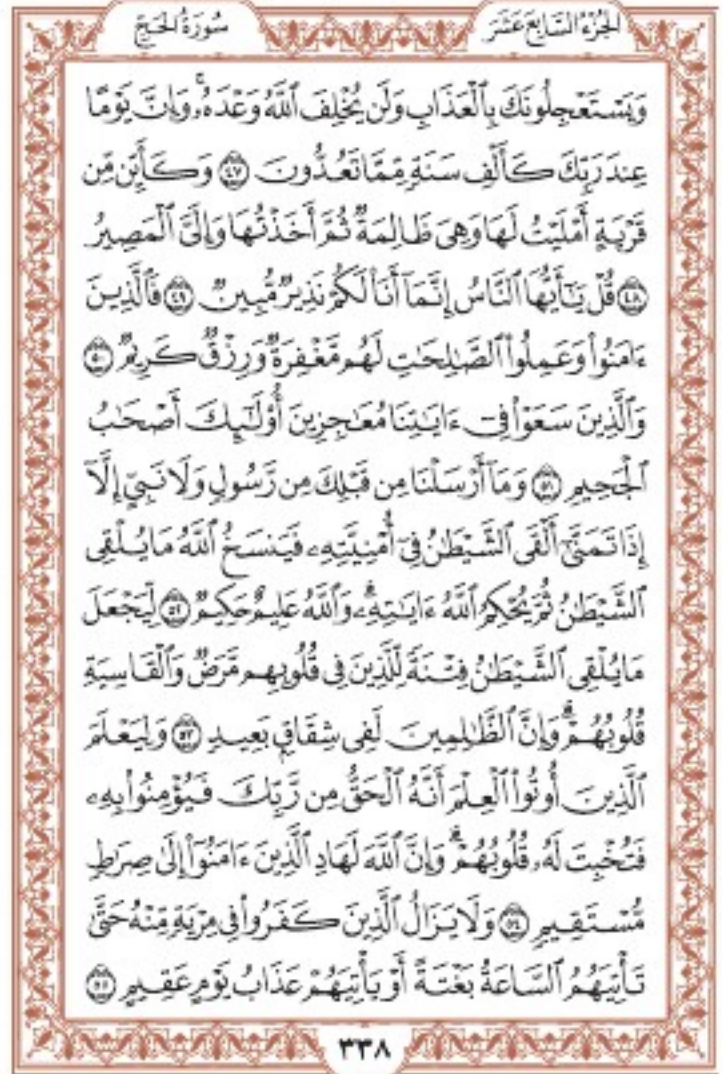 سُورَةُ الحَجِّ
الجُزْءُ السَّابِعَ عَشَرَ
وَيَسْتَعْجِلُونَكَ بِٱلْعَذَابِ وَلَن يُخْلِفَ ٱللَّهُ وَعْدَهُۥۚ وَإِنَّ يَوْمًا
عِندَ رَبِّكَ كَأَلْفِ سَنَةٍ مِّمَّا تَعُدُّونَ ۝٤٧ وَكَأَيِّن مِّن
قَرْيَةٍ أَمْلَيْتُ لَهَا وَهِىَ ظَالِمَةٌ ثُمَّ أَخَذْتُهَا وَإِلَىَّ ٱلْمَصِيرُ
۝٤٨ قُلْ يَٰٓأَيُّهَا ٱلنَّاسُ إِنَّمَآ أَنَا۠ لَكُمْ نَذِيرٌ مُّبِينٌ ۝٤٩ فَٱلَّذِينَ
ءَامَنُوا۟ وَعَمِلُوا۟ ٱلصَّٰلِحَٰتِ لَهُم مَّغْفِرَةٌ وَرِزْقٌ كَرِيمٌ ۝٥٠
وَٱلَّذِينَ سَعَوْا۟ فِىٓ ءَايَٰتِنَا مُعَٰجِزِينَ أُو۟لَٰٓئِكَ أَصْحَٰبُ
ٱلْجَحِيمِ ۝٥١ وَمَآ أَرْسَلْنَا مِن قَبْلِكَ مِن رَّسُولٍ وَلَا نَبِىٍّ إِلَّآ
إِذَا تَمَنَّىٰٓ أَلْقَى ٱلشَّيْطَٰنُ فِىٓ أُمْنِيَّتِهِۦ فَيَنسَخُ ٱللَّهُ مَا يُلْقِى
ٱلشَّيْطَٰنُ ثُمَّ يُحْكِمُ ٱللَّهُ ءَايَٰتِهِۦۗ وَٱللَّهُ عَلِيمٌ حَكِيمٌ ۝٥٢ لِّيَجْعَلَ
مَا يُلْقِى ٱلشَّيْطَٰنُ فِتْنَةً لِّلَّذِينَ فِى قُلُوبِهِم مَّرَضٌ وَٱلْقَاسِيَةِ
قُلُوبُهُمْۗ وَإِنَّ ٱلظَّٰلِمِينَ لَفِى شِقَاقٍۭ بَعِيدٍ ۝٥٣ وَلِيَعْلَمَ
ٱلَّذِينَ أُوتُوا۟ ٱلْعِلْمَ أَنَّهُ ٱلْحَقُّ مِن رَّبِّكَ فَيُؤْمِنُوا۟ بِهِۦ
فَتُخْبِتَ لَهُۥ قُلُوبُهُمْۗ وَإِنَّ ٱللَّهَ لَهَادِ ٱلَّذِينَ ءَامَنُوٓا۟ إِلَىٰ صِرَٰطٍ
مُّسْتَقِيمٍ ۝٥٤ وَلَا يَزَالُ ٱلَّذِينَ كَفَرُوا۟ فِى مِرْيَةٍ مِّنْهُ حَتَّىٰ
تَأْتِيَهُمُ ٱلسَّاعَةُ بَغْتَةً أَوْ يَأْتِيَهُمْ عَذَابُ يَوْمٍ عَقِيمٍ ۝٥٥
٣٣٨